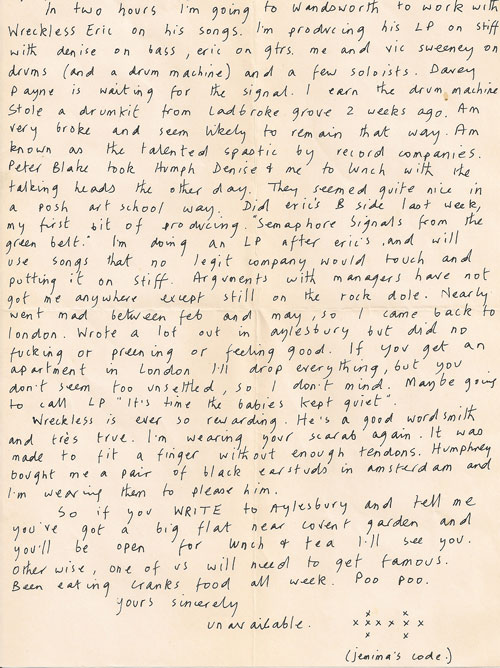 In two hours I'm going to Wandsworth to work with
Wreckless Eric on his songs. I'm producing his LP on stiff
with denise on bass, eric on gtrs. me and vic sweeney on
drums (and a drum machine) and a few soloists. Davey
Payne is waiting for the signal. I earn the drum machine
Stole a drumkit from Ladbroke grove 2 weeks ago. Am
very broke and seem likely to remain that way. Am
known as the talented spastic by record companies.
Peter Blake took Humph Denise & me to lunch with the
talking heads the other day. They seemed quite nice in
a posh art school way. Did eric's B side last week,
my first bit of producing. "Semaphore Signals from the
green belt." I'm doing an LP after eric's, and will
use songs that no legit company would touch and
putting it on stiff. Arguments with managers have not
got me anywhere except still on the rock dole. Nearly
went mad between feb and may, so I came back to
london. Wrote a lot out in aylesbury but did no
fucking or preening or feeling good. If you get an
apartment in London I'll drop everything, but you
don't seem too unsettled, so I don't mind. Maybe going
to call LP "It's time the babies kept quiet".
Wreckless is ever so rewarding. He's a good wordsmith
and très true. I'm wearing your scarab again. It was
made to fit a finger without enough tendons. Humphrey
bought me a pair of black earstuds in amsterdam and
I'm wearing them to please him.
So if you WRITE to Aylesbury and tell me
you've got a big flat near covent garden and
you'll be open for lunch & tea I'll see you.
Otherwise, one of us will need to get famous.
Been eating cranks food all week. Poo poo.
yours sincerely
unavailable.
x x
x x x x x x
x x
(jemima's code.)